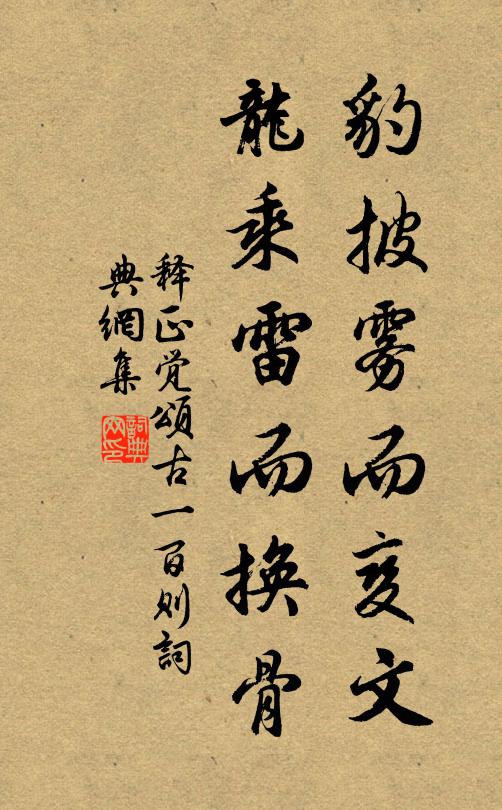 豹披雾而变文
龍乘雷而换骨
释正觉頌古一百则詞
典網集
詞典网印